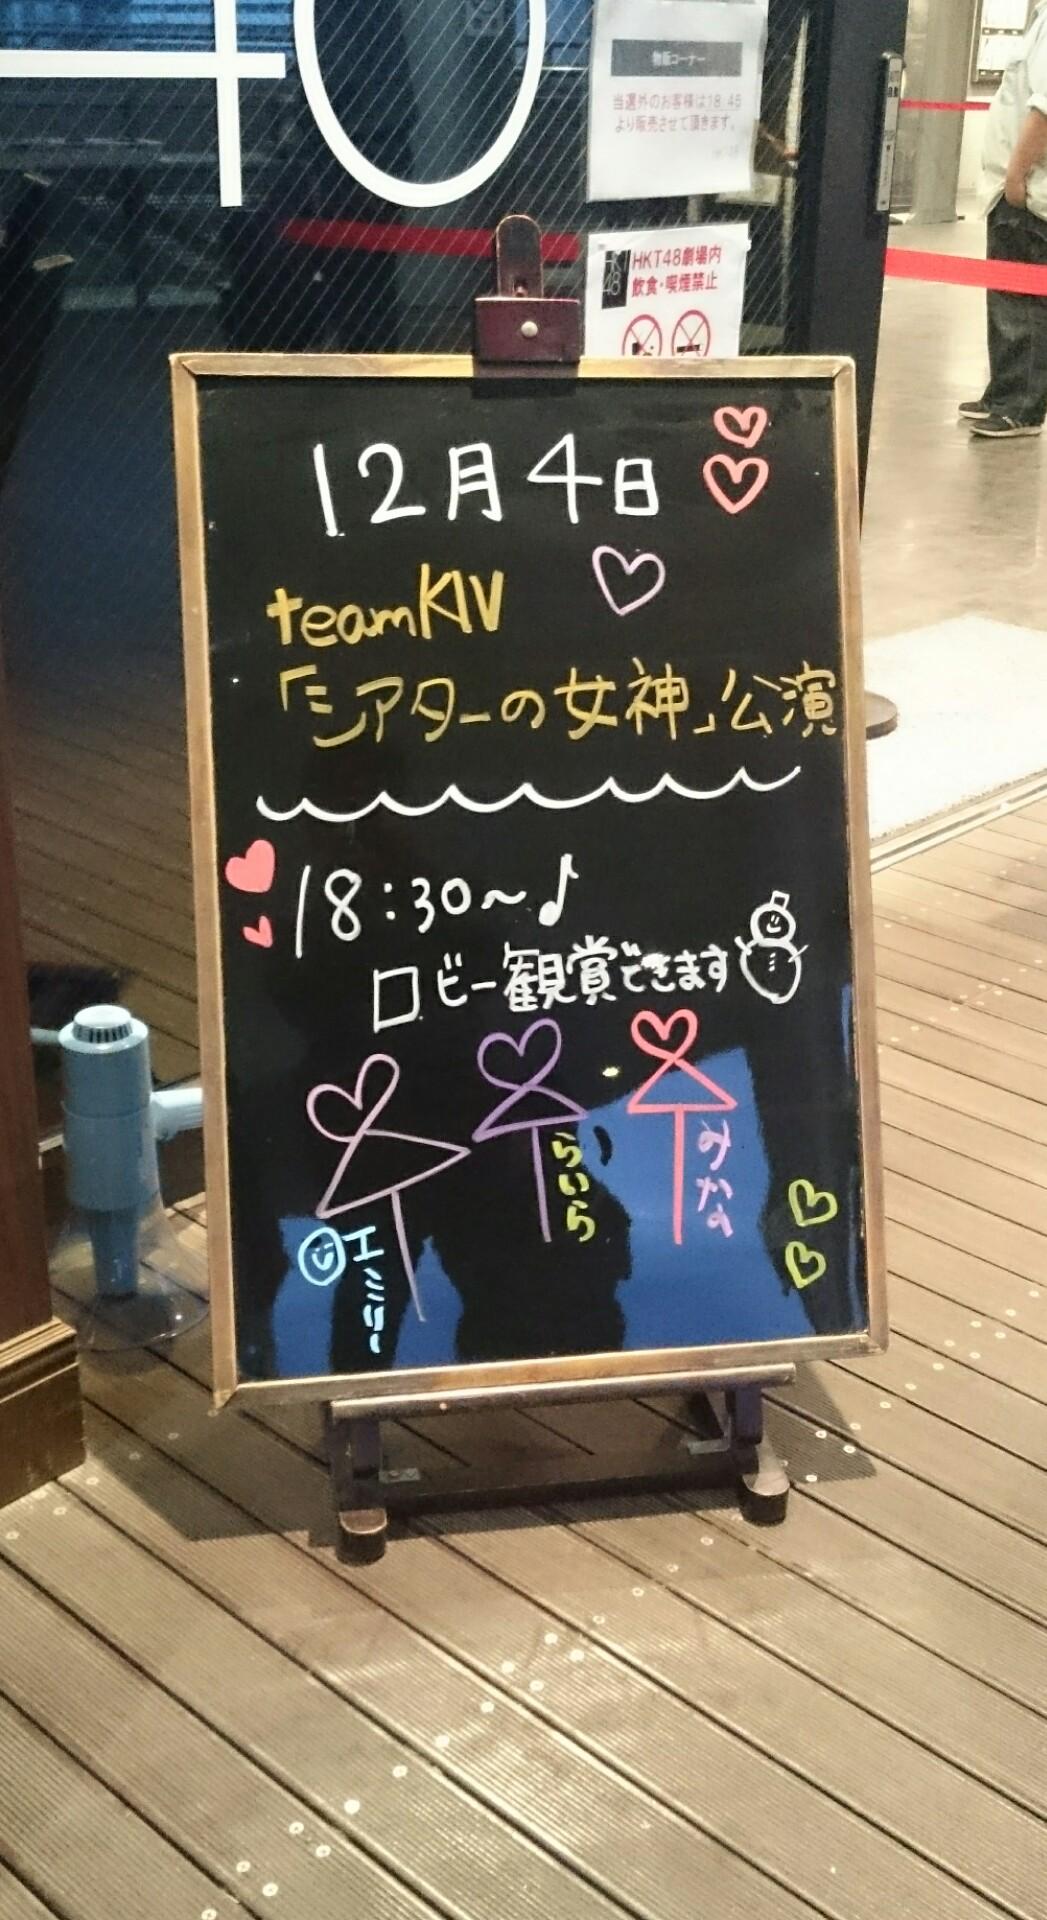 40
物販コーナー
当選外のお客様は18:45
より販売させて頂きます。
HKT48劇場内
飲食・喫煙禁止
12月4日
teamKIV
「シアターの女神」公演
18:30～♪
ロビー観賞できます
エミリー
らいら
みなみ